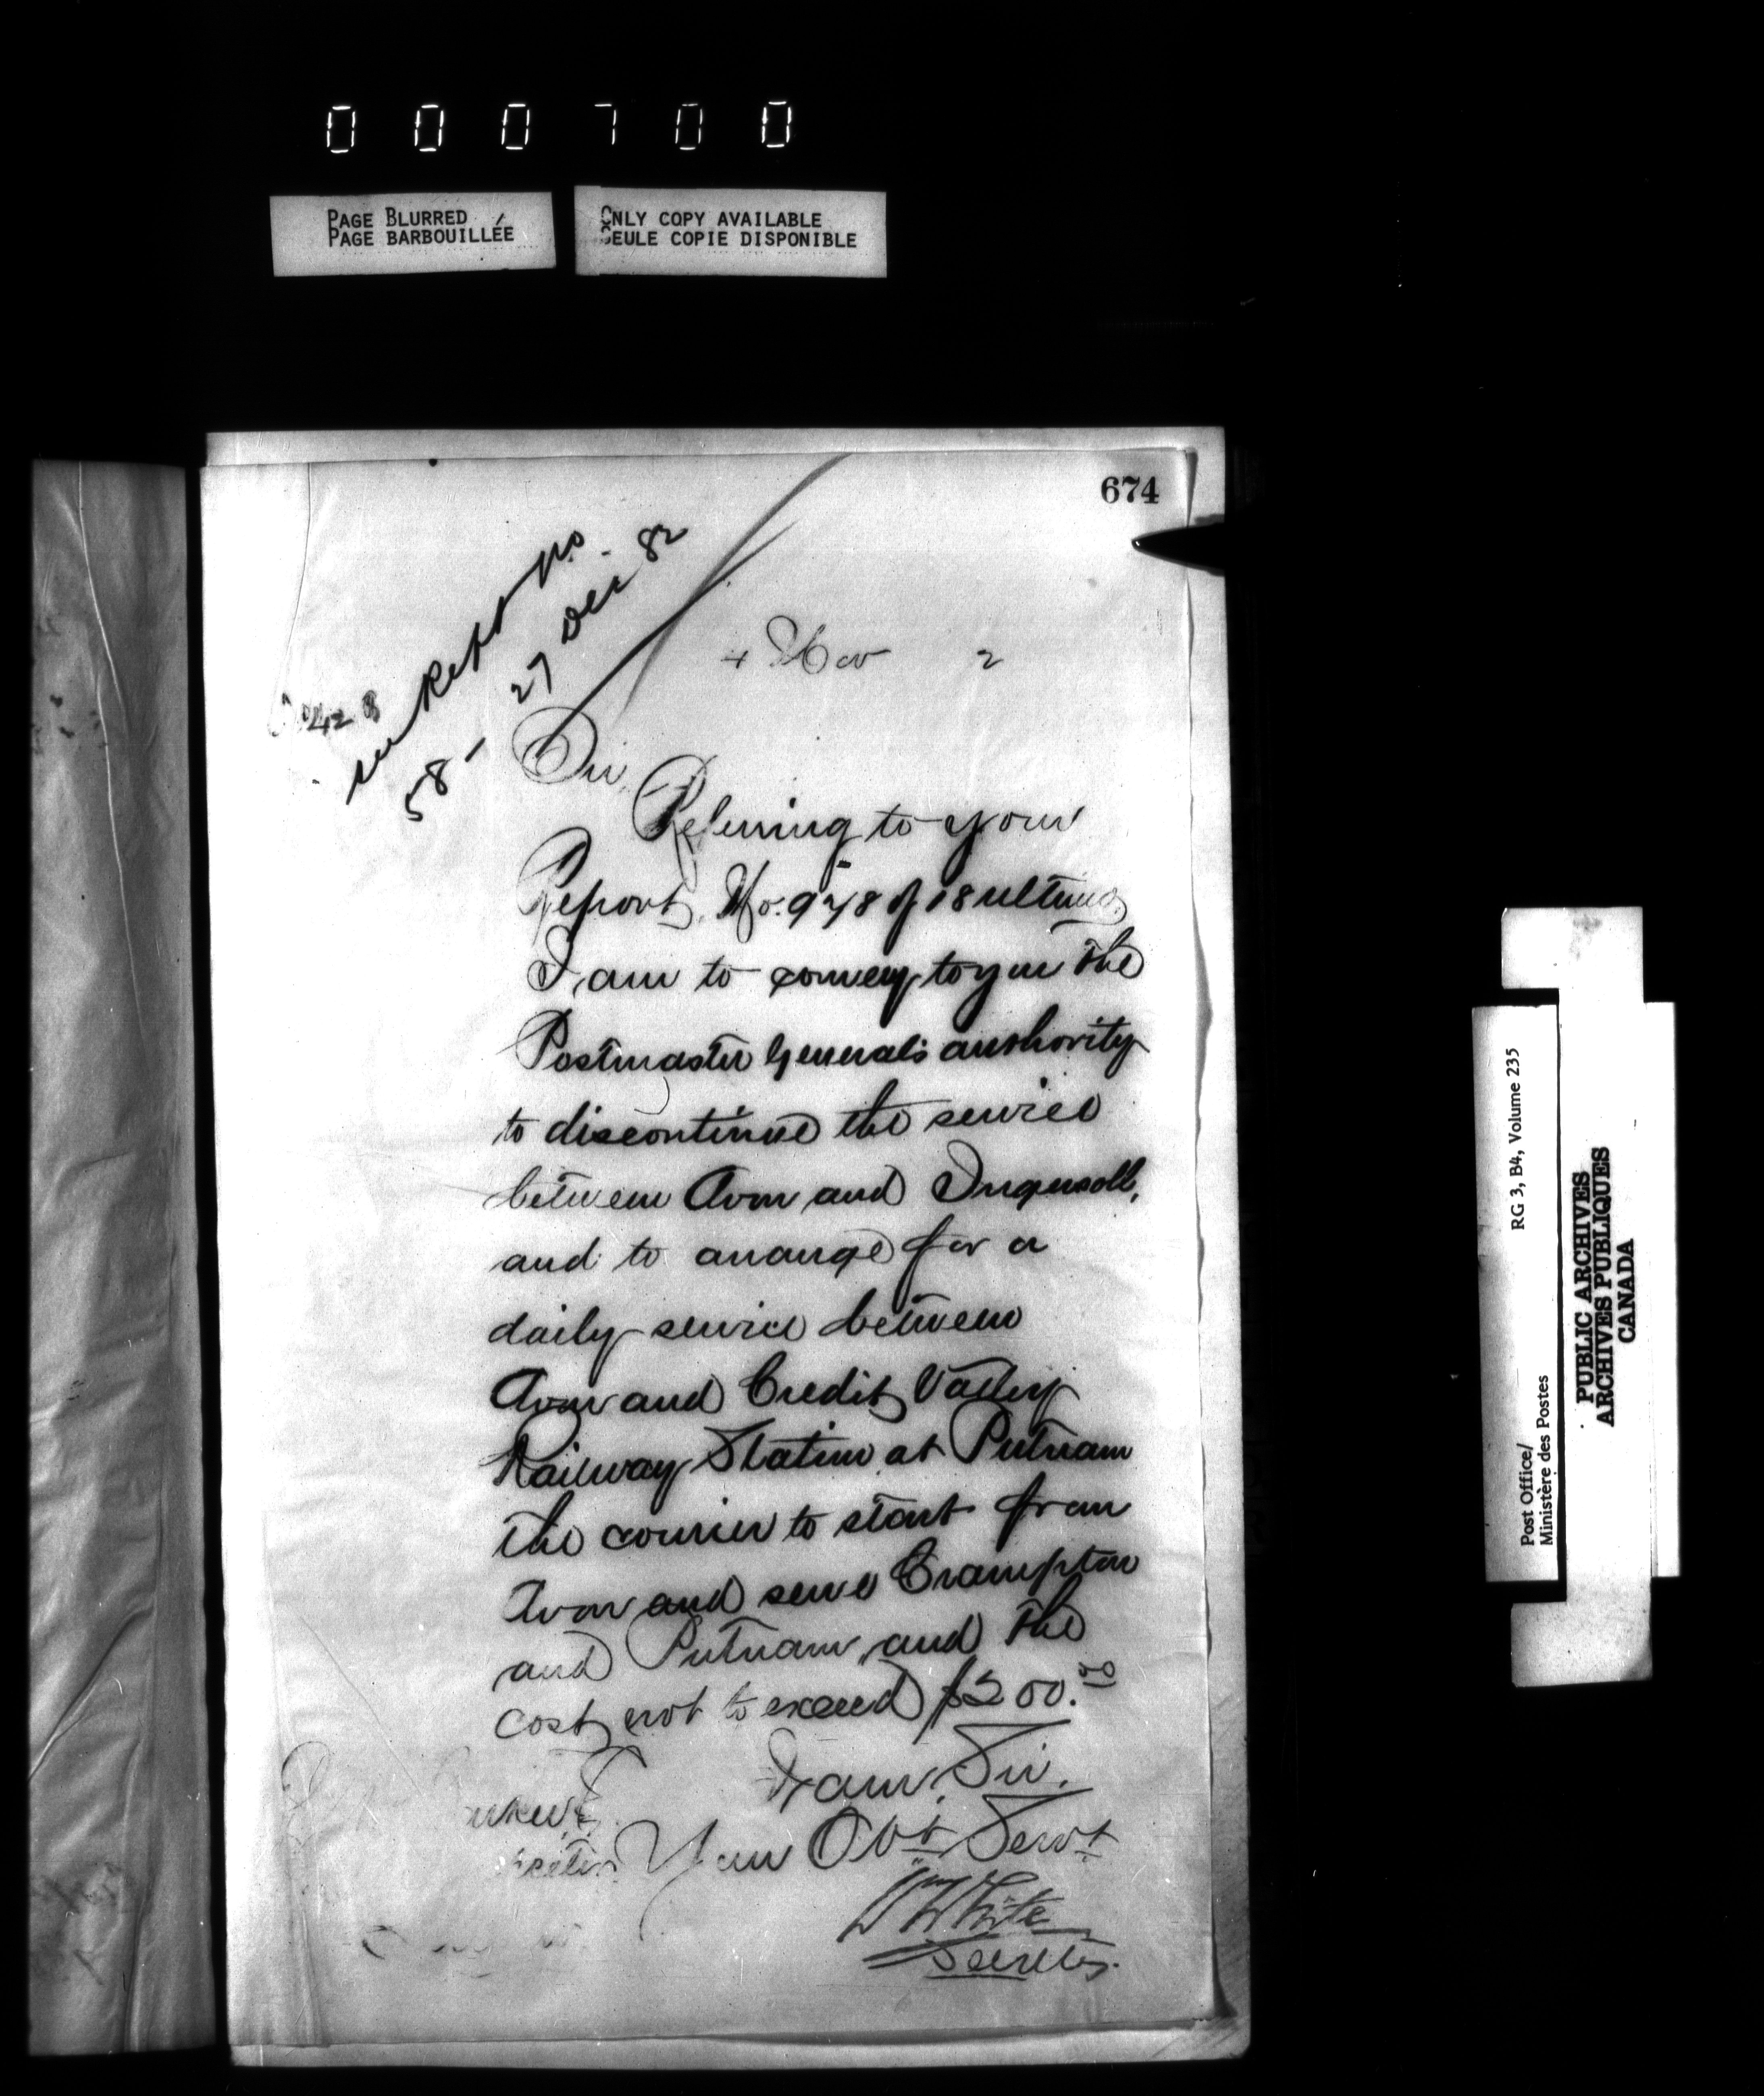 000700
PAGE BLURRED
PAGE BARBOUILLÉE
ONLY COPY AVAILABLE
SEULE COPIE DISPONIBLE
674
see Rept no
58 - 27 Dec. 82
4 Nov 2
Sir,
Referring to your
Report, No. 928 of 18 ultimo,
I am to convey to you the
Postmaster General's authority
to discontinue the service
between Avon and Ingersoll,
and to arrange for a
daily service between
Avon and Credit Valley
Railway Station at Putnam
the courier to start from
Avon and serve Crampton
and Putnam, and the
cost not to exceed $200.00
I am, Sir.
Your Obt Servt
Wm White
Secretary.
Post Office/
Ministère des Postes
RG 3, B4, Volume 235
PUBLIC ARCHIVES
ARCHIVES PUBLIQUES
CANADA